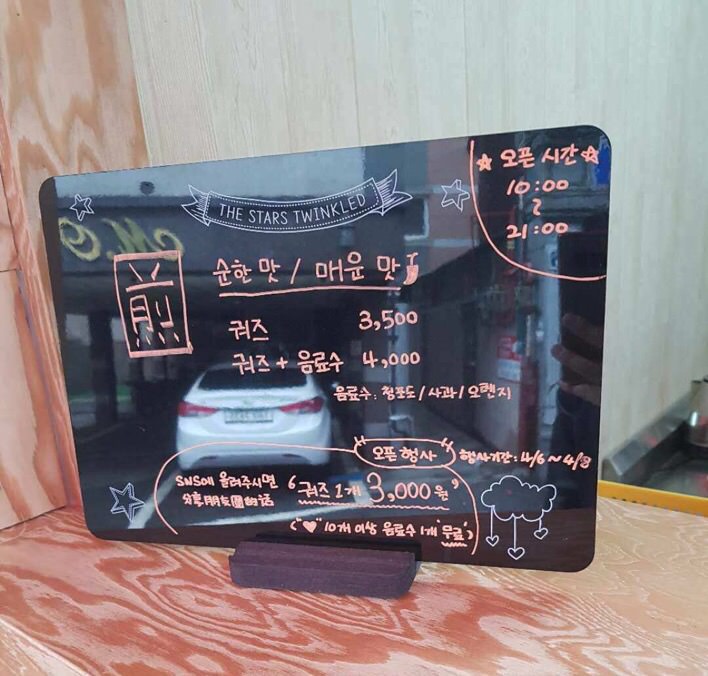 THE STARS TWINKLED
☆ 오픈 시간 ☆
10:00
~
21:00
煎
순한 맛 / 매운 맛
궈즈 3,500
궈즈 + 음료수 4,000
음료수 : 청포도 / 사과 / 오렌지
"오픈 행사" 행사기간 : 4/6 ~ 4/8
SNS에 올려주시면 '궈즈 1개 3,000원'
分享朋友圈的话
("♥ 10개 이상 음료수 1개 "무료")